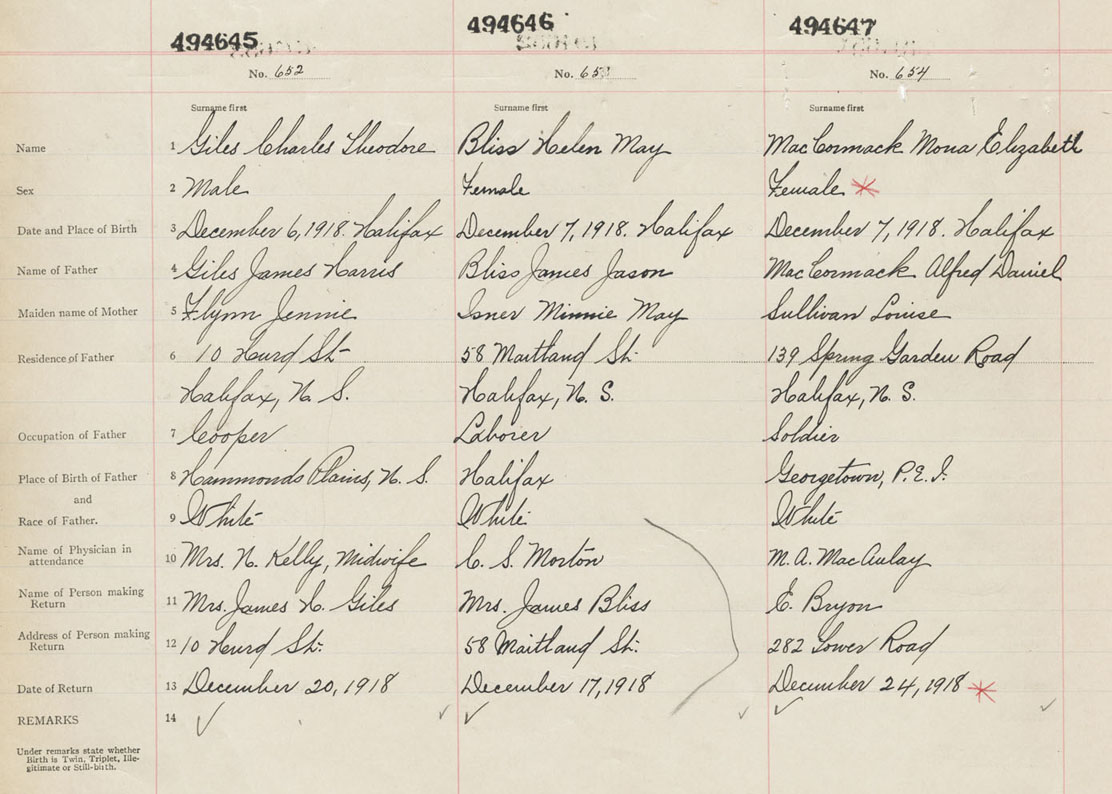 494645 494646 494647
No. 652 No. 65 No. 654
Surname first Surname first Surname first
Name 1 Giles Charles Theodore Bliss Helen May MacCormack Mona Elizabeth
Sex 2 Male Female Female
Date and Place of Birth 3 December 6, 1918. Halifax December 7, 1918. Halifax December 7, 1918. Halifax
Name of Father 4 Giles James Harris Bliss James Jason MacCormack Alfred Daniel
Maiden name of Mother 5 Flynn Jennie Isner Minnie May Sullivan Louise
Residence of Father 6 10 Hurd St. 58 Maitland St. 139 Spring Garden Road
Halifax, N. S. Halifax, N. S. Halifax, N. S.
Occupation of Father 7 Cooper Laborer Soldier
Place of Birth of Father 8 Hammonds Plains, N. S. Halifax Georgetown, P.E.I.
and
Race of Father. 9 White White White
Name of Physician in
attendance 10 Mrs. N. Kelly, Midwife C. S. Morton M. A. MacAulay
Name of Person making
Return 11 Mrs. James H. Giles Mrs. James Bliss E. Bryon
Address of Person making
Return 12 10 Hurd St. 58 Maitland St. 282 Road
Date of Return 13 December 20, 1918 December 17, 1918 December 24, 1918
REMARKS 14
Under remarks state whether
Birth is Twin, Triplet, Ille-
gitimate or Still-birth.